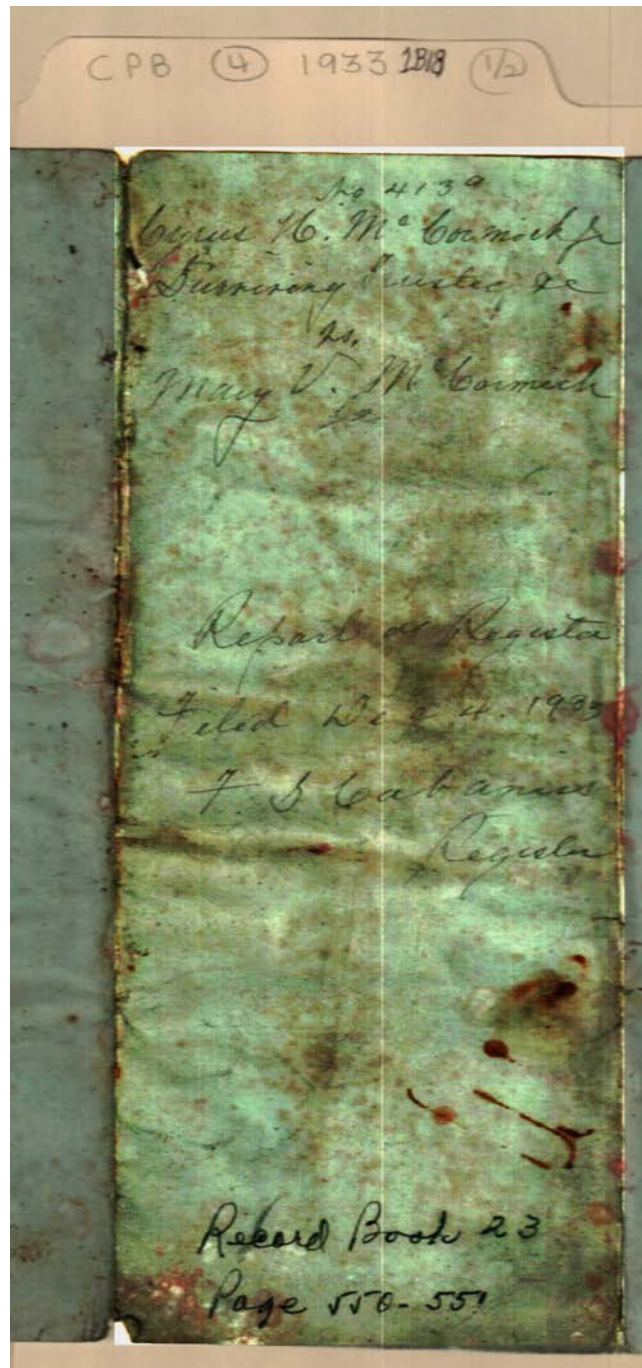 CPB 4 1933 1/2
No 4139
Cyrus H. McCormick Jr
Surviving Trustee &c
vs.
Mary V. McCormick
Report of Register
Filed Dec 4. 1933
F. S Cabaniss
Register
Record Book 23
Page 550-551